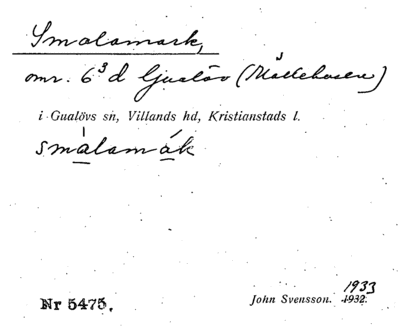 Smalamark,
omr. 6³ d Gualöv (Möllehusen)
i Gualövs sn, Villands hd, Kristianstads l.
småla̱må̱k
1933
Nr 5475. John Svensson. 1932.